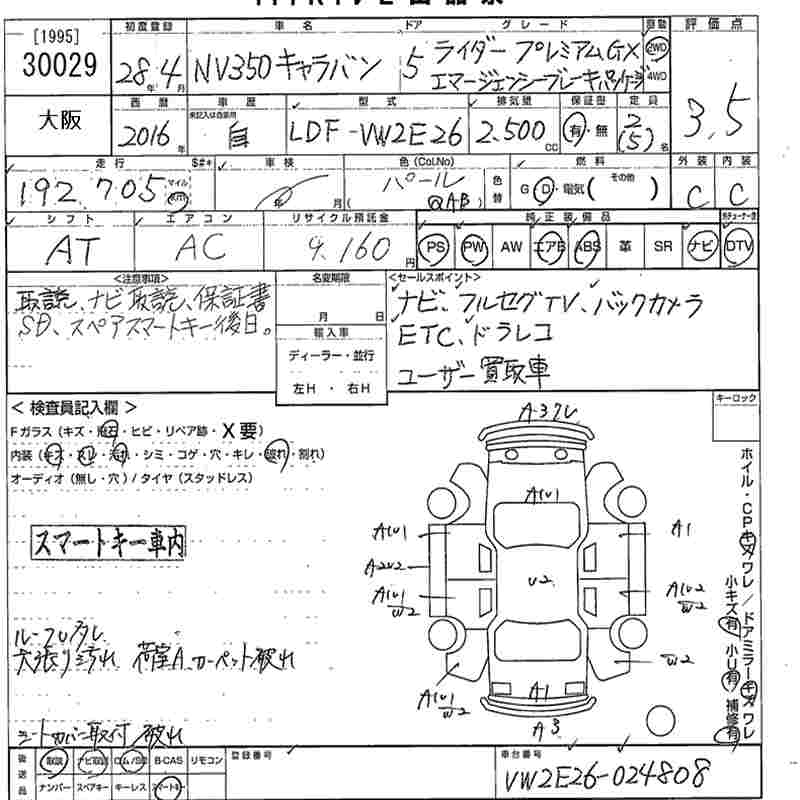 [1995]
30029
大阪
初度登録 車名 ドア グレード 駆動 評価点
28年4月 NV350キャラバン 5 ライダー プレミアムGX 2WD
エマージェンシーブレーキパッケージ 4WD
3.5
西暦 車歴 型式 排気量 保証書 定員
2016年 未記入は自家用 自 LDF-VW2E26 2.500cc 有・無 2(5)名
走行 S#キ 車検 色(Col.No) 燃料 外装 内装
192,705 マイル km 年 月 パール (QAB) 色替 G・D・電気( その他 ) C C
シフト エアコン リサイクル預託金 純正装備品
AT AC 9,160円 PS PW AW エアB ABS 革 SR ナビ DTV
<注意事項>
取説、ナビ取説、保証書
SD、スペアスマートキー後日。
名変期限
月 日
輸入車
ディーラー・並行
左H ・ 右H
<セールスポイント>
ナビ、フルセグTV、バックカメラ
ETC、ドラレコ
ユーザー買取車
<検査員記入欄>
Fガラス(キズ・飛石・ヒビ・リペア跡・X要)
内装(キズ・スレ・汚れ・シミ・コゲ・穴・キレ・破れ・割れ)
オーディオ(無し・穴)/タイヤ(スタッドレス)
キーロック
スマートキー車内
A(U)
A(U)1
A1
A2U2
U2
A(U)1
W2
A(U)2
W2
W2
A(U)1
W2
A1
A3
天張り汚れ 荷室A、カーペット破れ
シートカバー取付/破れ
ホイル・CPキズワレ/ドアミラーキズワレ
小キズ有 小U有 補修有
後送品 取説 ナビ取説 ロム/SD B-CAS リモコン
ナンバー スペアキー キーレス スマートキー
登録番号
車台番号
VW2E26-024808